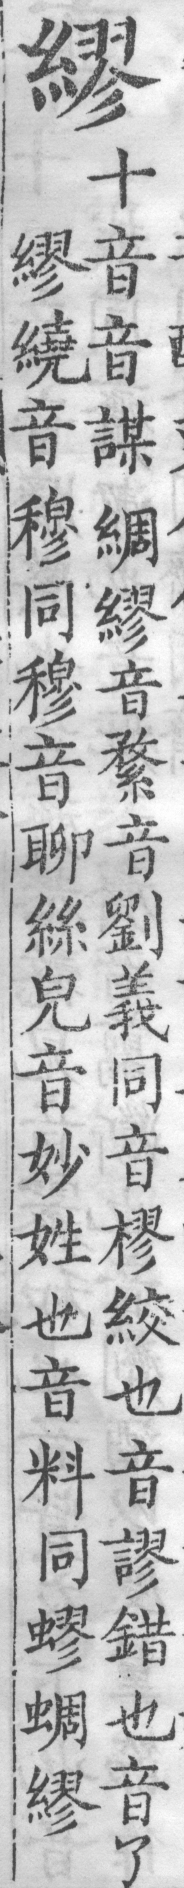 繆
十音音謀綢繆音鍪音劉義同音樛絞也音謬錯也音了
繆繞音穆同穆音聊絲皃音妙姓也音料同蟉蜩繆